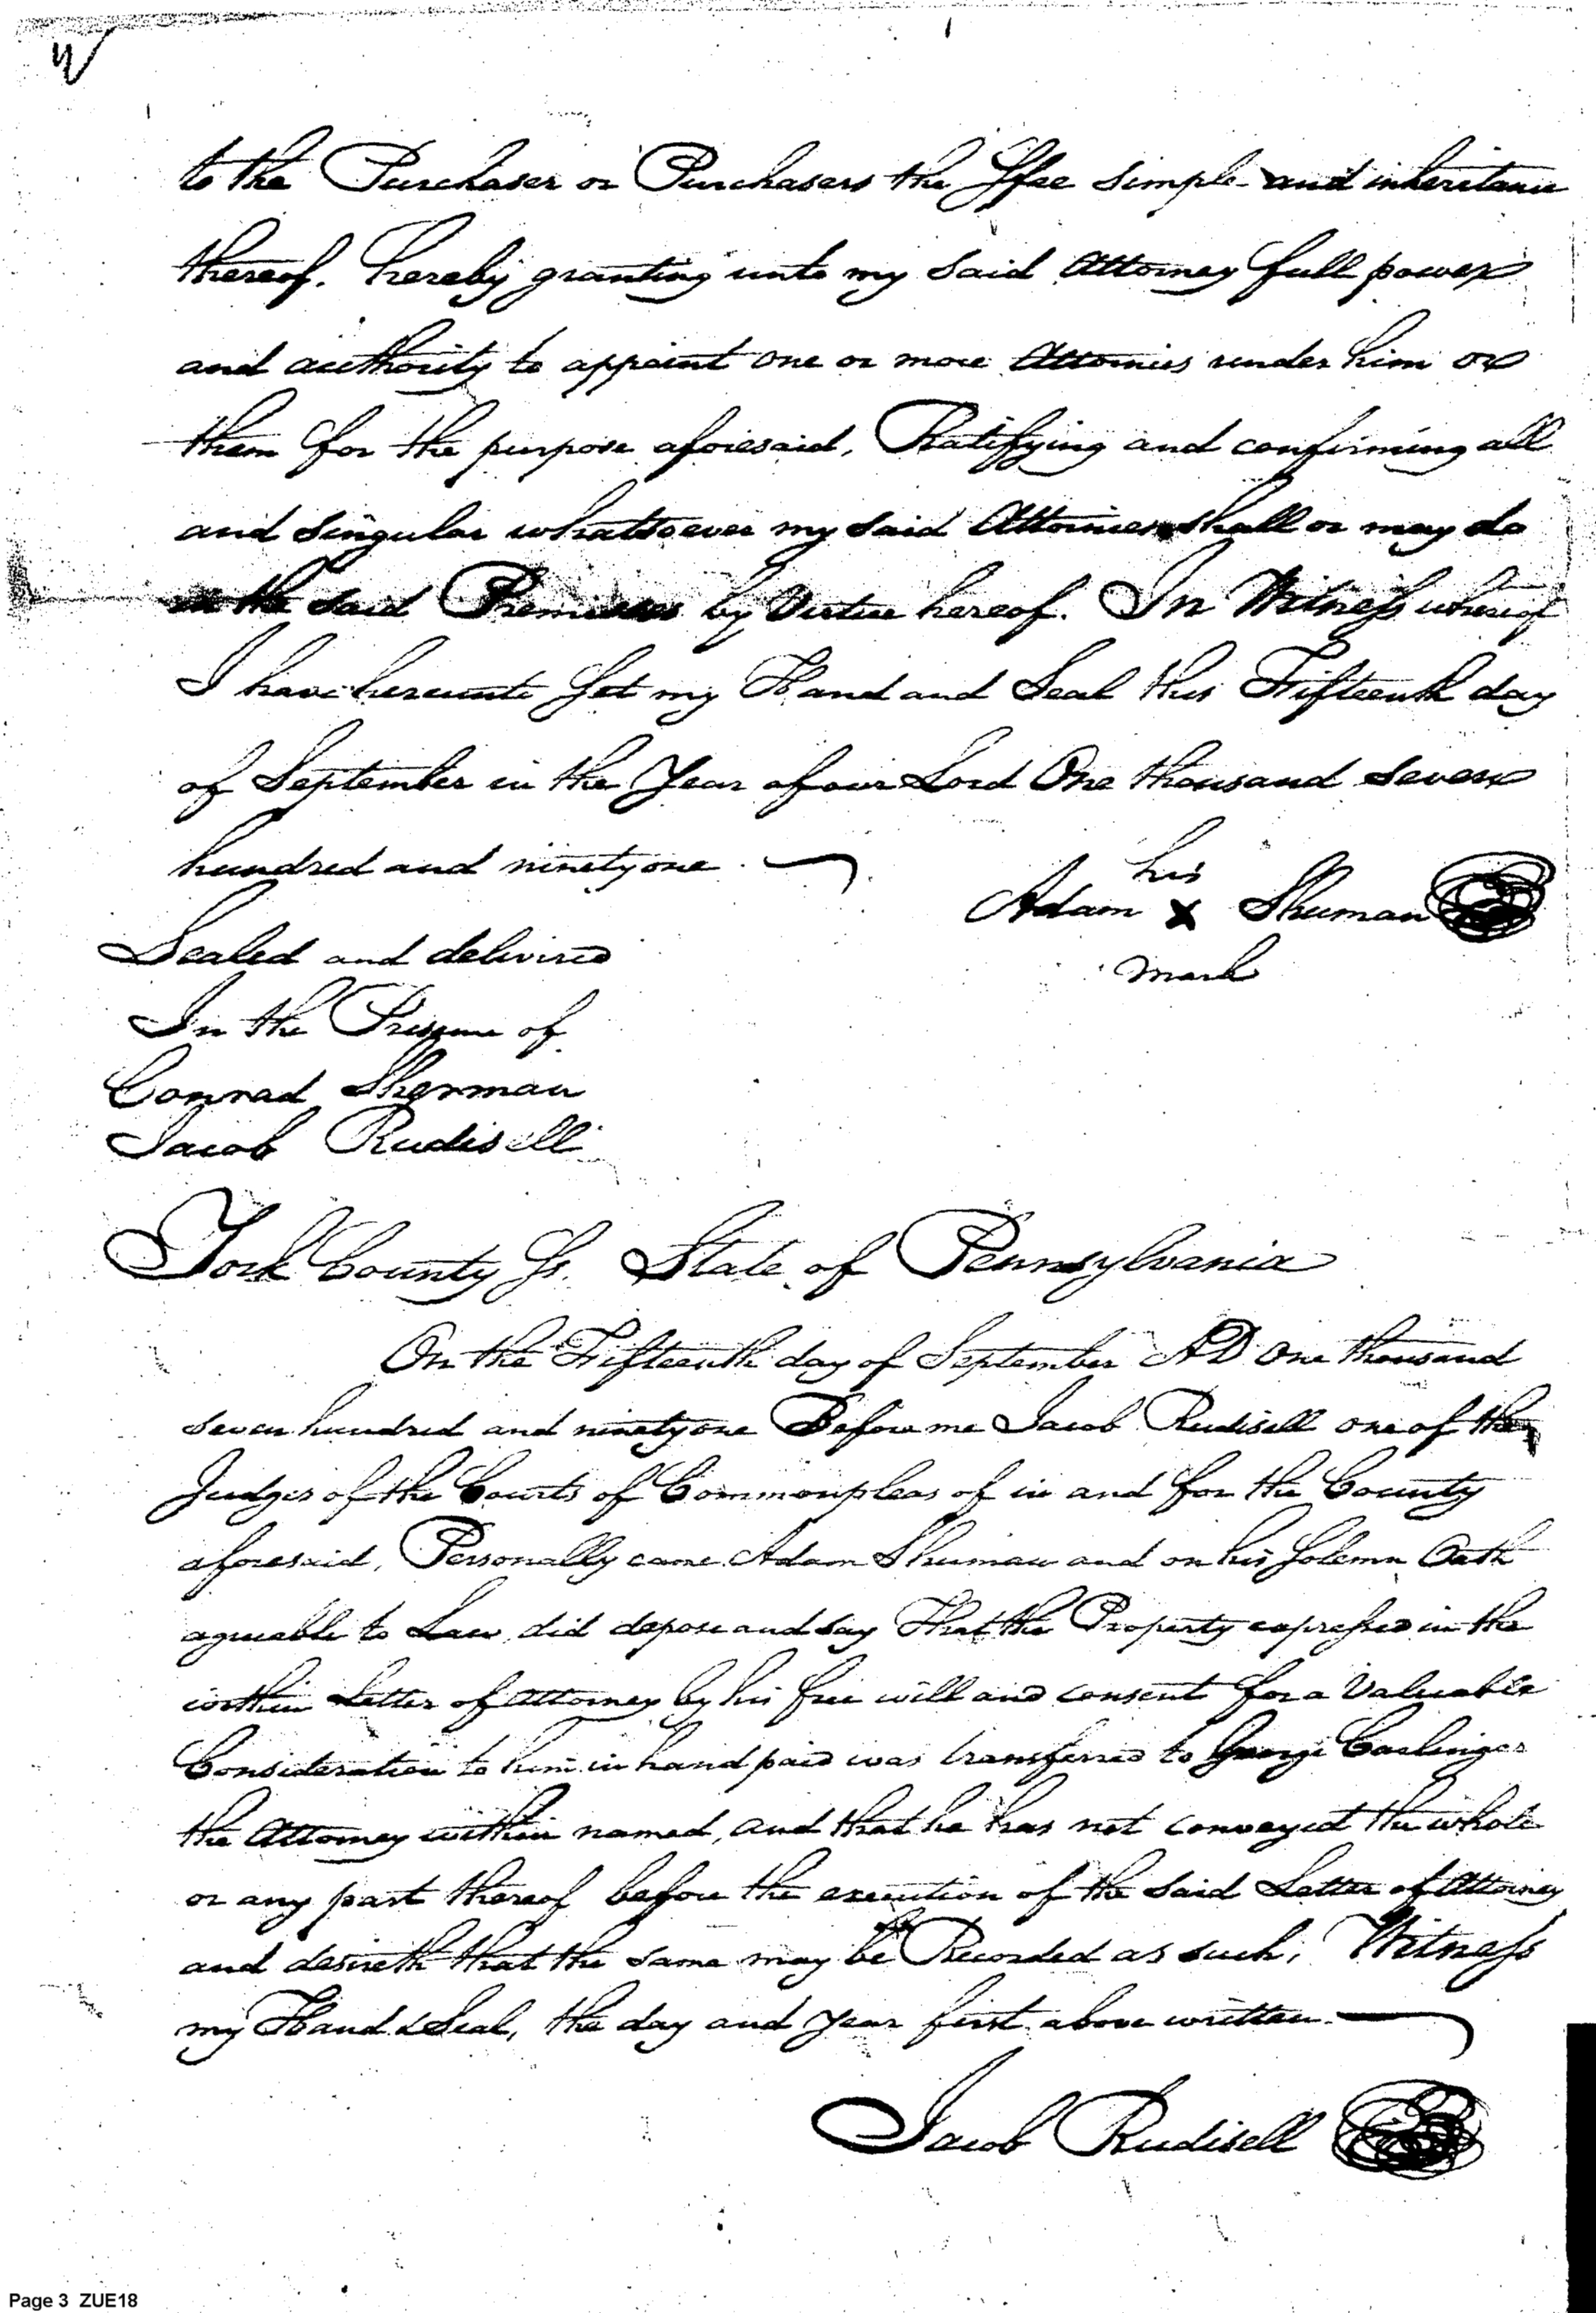 to the Purchaser or Purchasers the ffee Simple and inheritance
thereof. hereby granting unto my Said Attorney full power
and authority to appoint one or more Attornies under him or
them for the purpose aforesaid, Ratifying and confirming all
and Singular whatsoever my Said Attornies shall or may do
in the Said Premisses by Virtue hereof. In Witness whereof
I have hereunto Set my Hand and Seal this Fifteenth day
of September in the Year of our Lord One thousand Seven
hundred and ninety one
his
Adam X Shuman
mark
Sealed and delivired
In the Presence of
Conrad Sherman
Jacob Rudisell
York County Ss. State of Pennsylvania
On the Fifteenth day of September AD One thousand
Seven hundred and ninety one Before me Jacob Rudisell one of the
Judges of the Courts of Commonpleas of in and for the County
aforesaid, Personally came Adam Shuman and on his Solemn Oath
agreeable to Law did depose and Say That the Property expressed in the
within Letter of Attorney by his free will and consent for a Valuable
Consideration to him in hand paid was transferred to George
the Attorney within named, and that he has not conveyed the whole
or any part thereof before the execution of the Said Letter of Attorney
and desireth that the Same may be Recorded as such; Witness
my Hand & Seal, the day and year first above written
Jacob Rudisell
Page 3 ZUE18